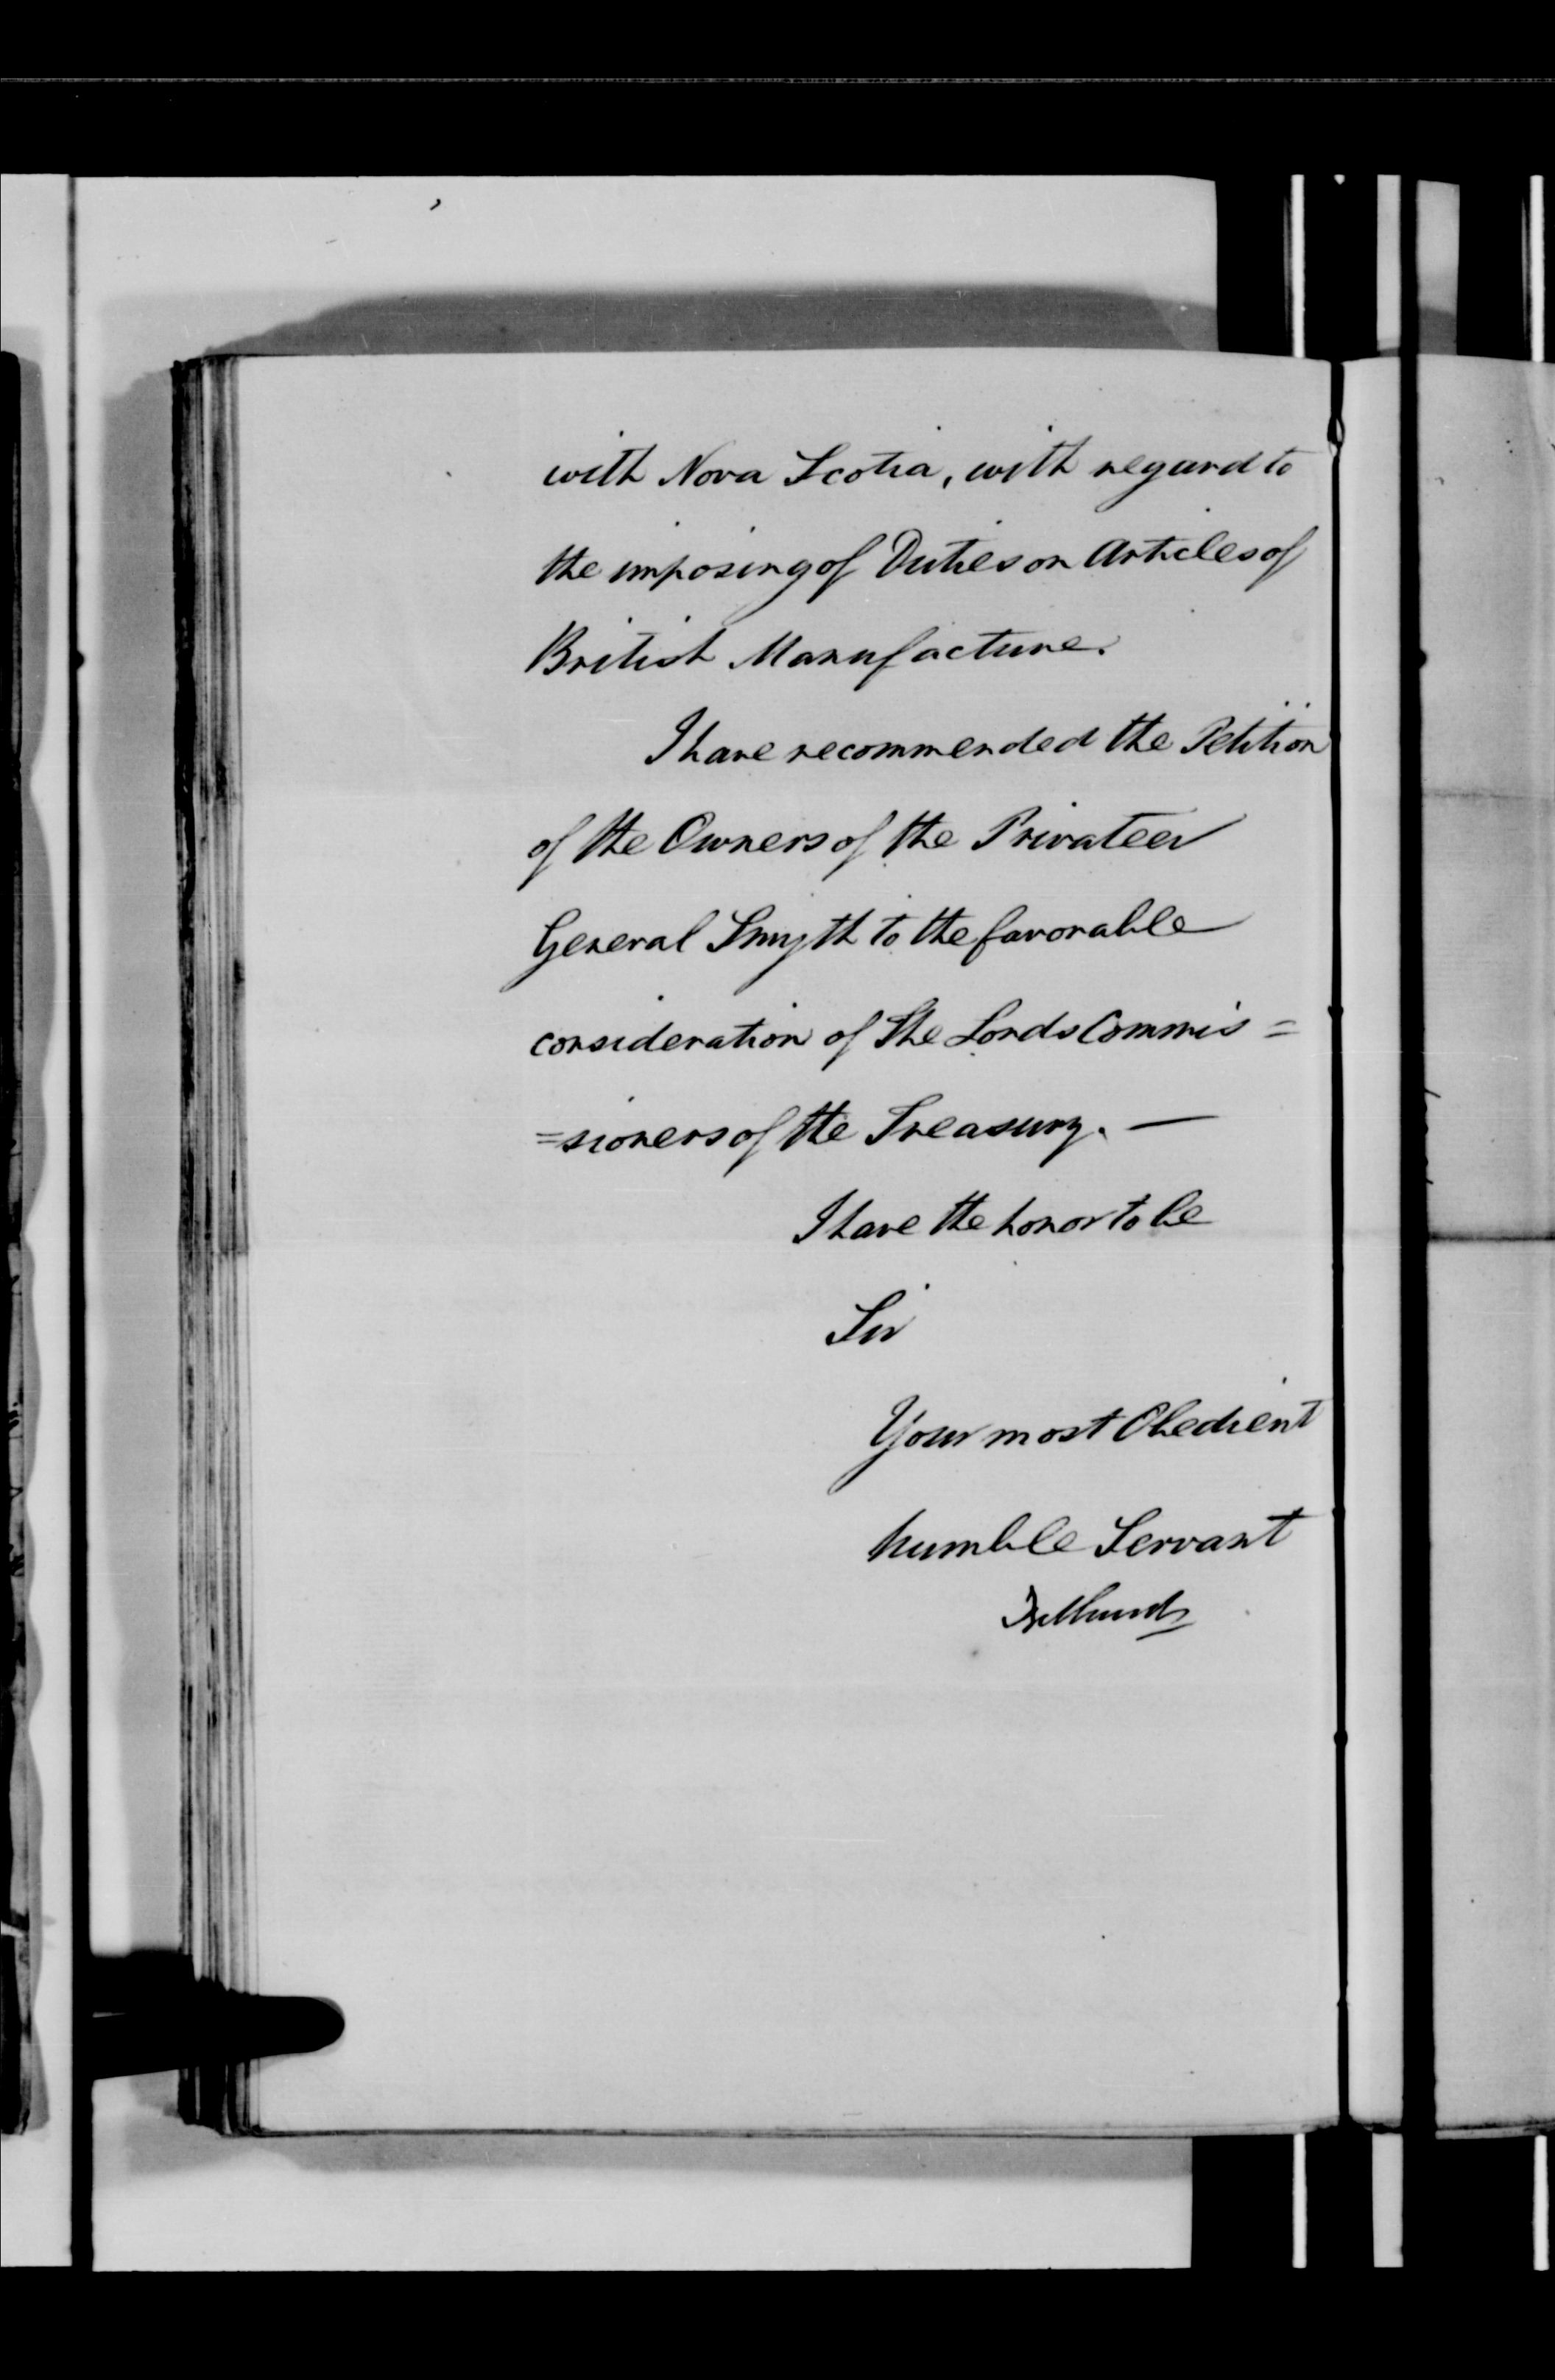 with Nova Scotia, with regard to
the imposing of Duties on Articles of
British Manufacture.
I have recommended the Petition
of the Owners of the Privateer
General Smyth to the favorable
consideration of The Lords Commis=
=sioners of the Treasury. —
I have the honor to be
Sir
Your most Obedient
humble Servant